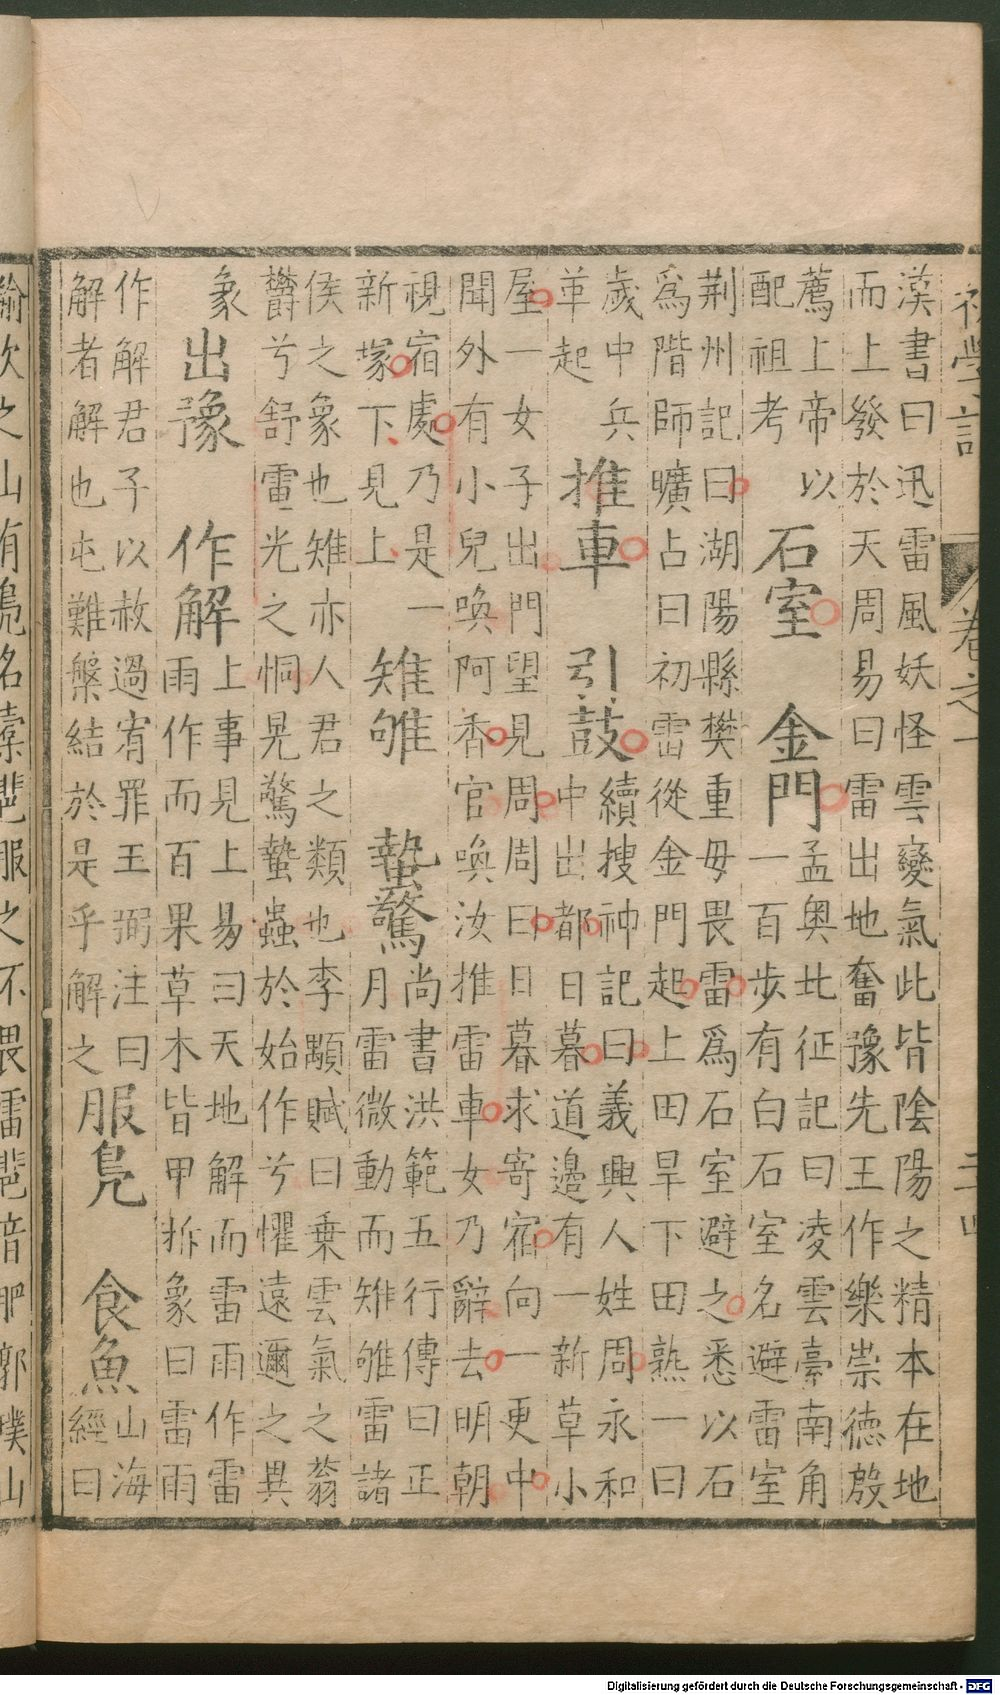 初學記 卷之一 三十四
漢書曰迅雷風妖怪雲變氣此皆陰陽之精本在地
而上發於天周易曰雷出地奮豫先王作樂崇德殷
薦上帝以
配祖考
石室 金門
孟奧北征記曰凌雲臺南角
一百步有白石室名避雷室
荆州記曰湖陽縣樊重母畏雷爲石室避之悉以石
爲階師曠占曰初雷從金門起上田旱下田熟一曰
歲中兵
革起
推車 引鼓
續搜神記曰義興人姓周永和
中出都日暮道邊有一新草小
屋一女子出門望見周周曰日暮求寄宿向一更中
聞外有小兒喚阿香官喚汝推雷車女乃辭去明朝
視宿處乃是一
新塚下見上
雉雊 蟄驚
尚書洪範五行傳曰正
月雷微動而雉雊雷諸
侯之象也雉亦人君之類也李顒賦曰乗雲氣之蓊
欝兮舒雷光之恫晃驚蟄蟲於始作兮懼遠邇之異
象
出豫 作解
上事見上易曰天地解而雷雨作雷
雨作而百果草木皆甲拆象曰雷雨
作解君子以赦過宥罪王弼注曰
解者解也屯難槃結於是乎解之
服鳧 食魚
山海
經曰
之山有鳧名橐𩇯服之不畏雷𩇯音肥郭璞山
Digitalisierung gefördert durch die Deutsche Forschungsgemeinschaft - DFG